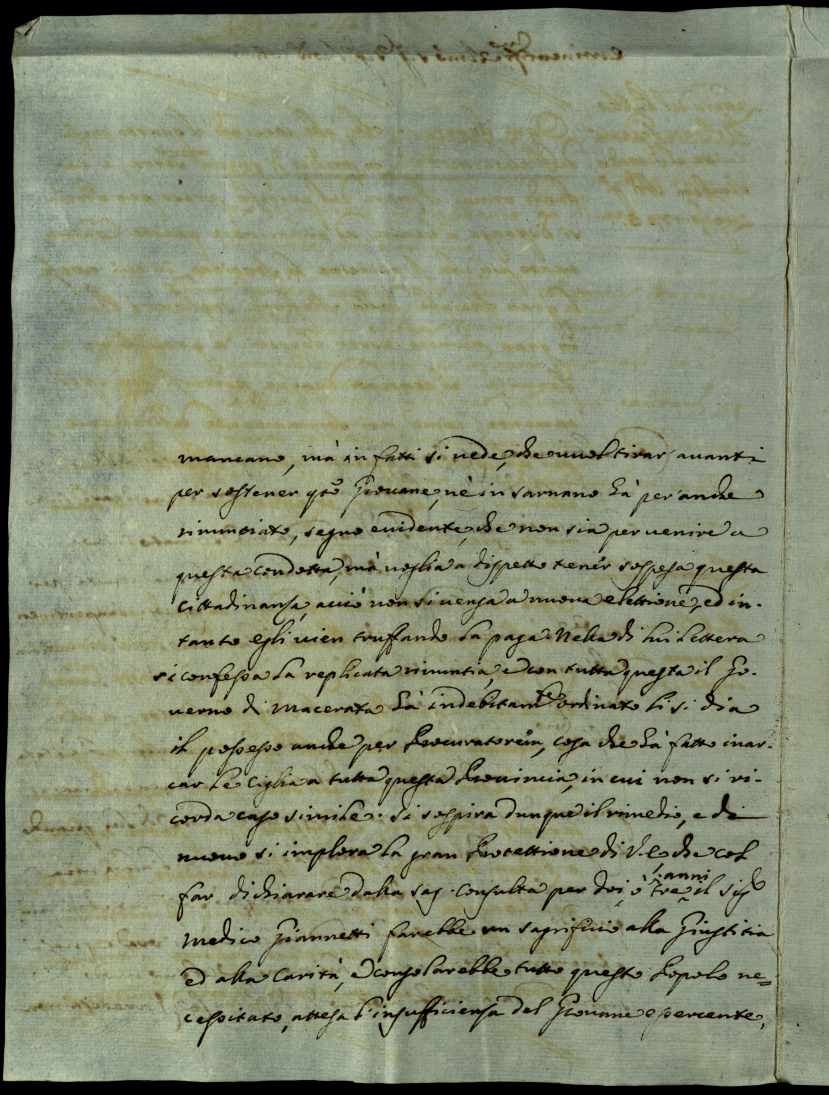 mancano, mà in fatti si vede, che vuol tirar avanti
per sostener q.to Giovane, nè in Sarnano hà per anche
rinunciato, segno evidente, che non sia per venire a
questa condotta, mà voglia a dispetto tener sospesa questa
Cittadinanza, acciò non si venga a nuova elettione, ed in-
tanto egli vien truffando la paga. Nella di lui lettera
si confessa la replicata rinuntia, e con tutta questa il Go-
verno di Macerata hà indebitam.te ordinato li si dia
il possesso anche per Procuratorem, cosa che hà fatto inar-
car le ciglia a tutta questa Provincia, in cui non si ri-
corda caso simile. Si sospira dunque il rimedio, e di
nuovo si implora la gran Protettione di V. E. che col
far dichiarare dalla sag. Consulta per doi, ò tre anni il Sig.
Medico Giannetti farebbe un sagrificio alla Giustitia
ed alla Carità, e consolarebbe tutto questo Popolo ne=
cessitato, attesa l'insufficienza del Giovane esercente,